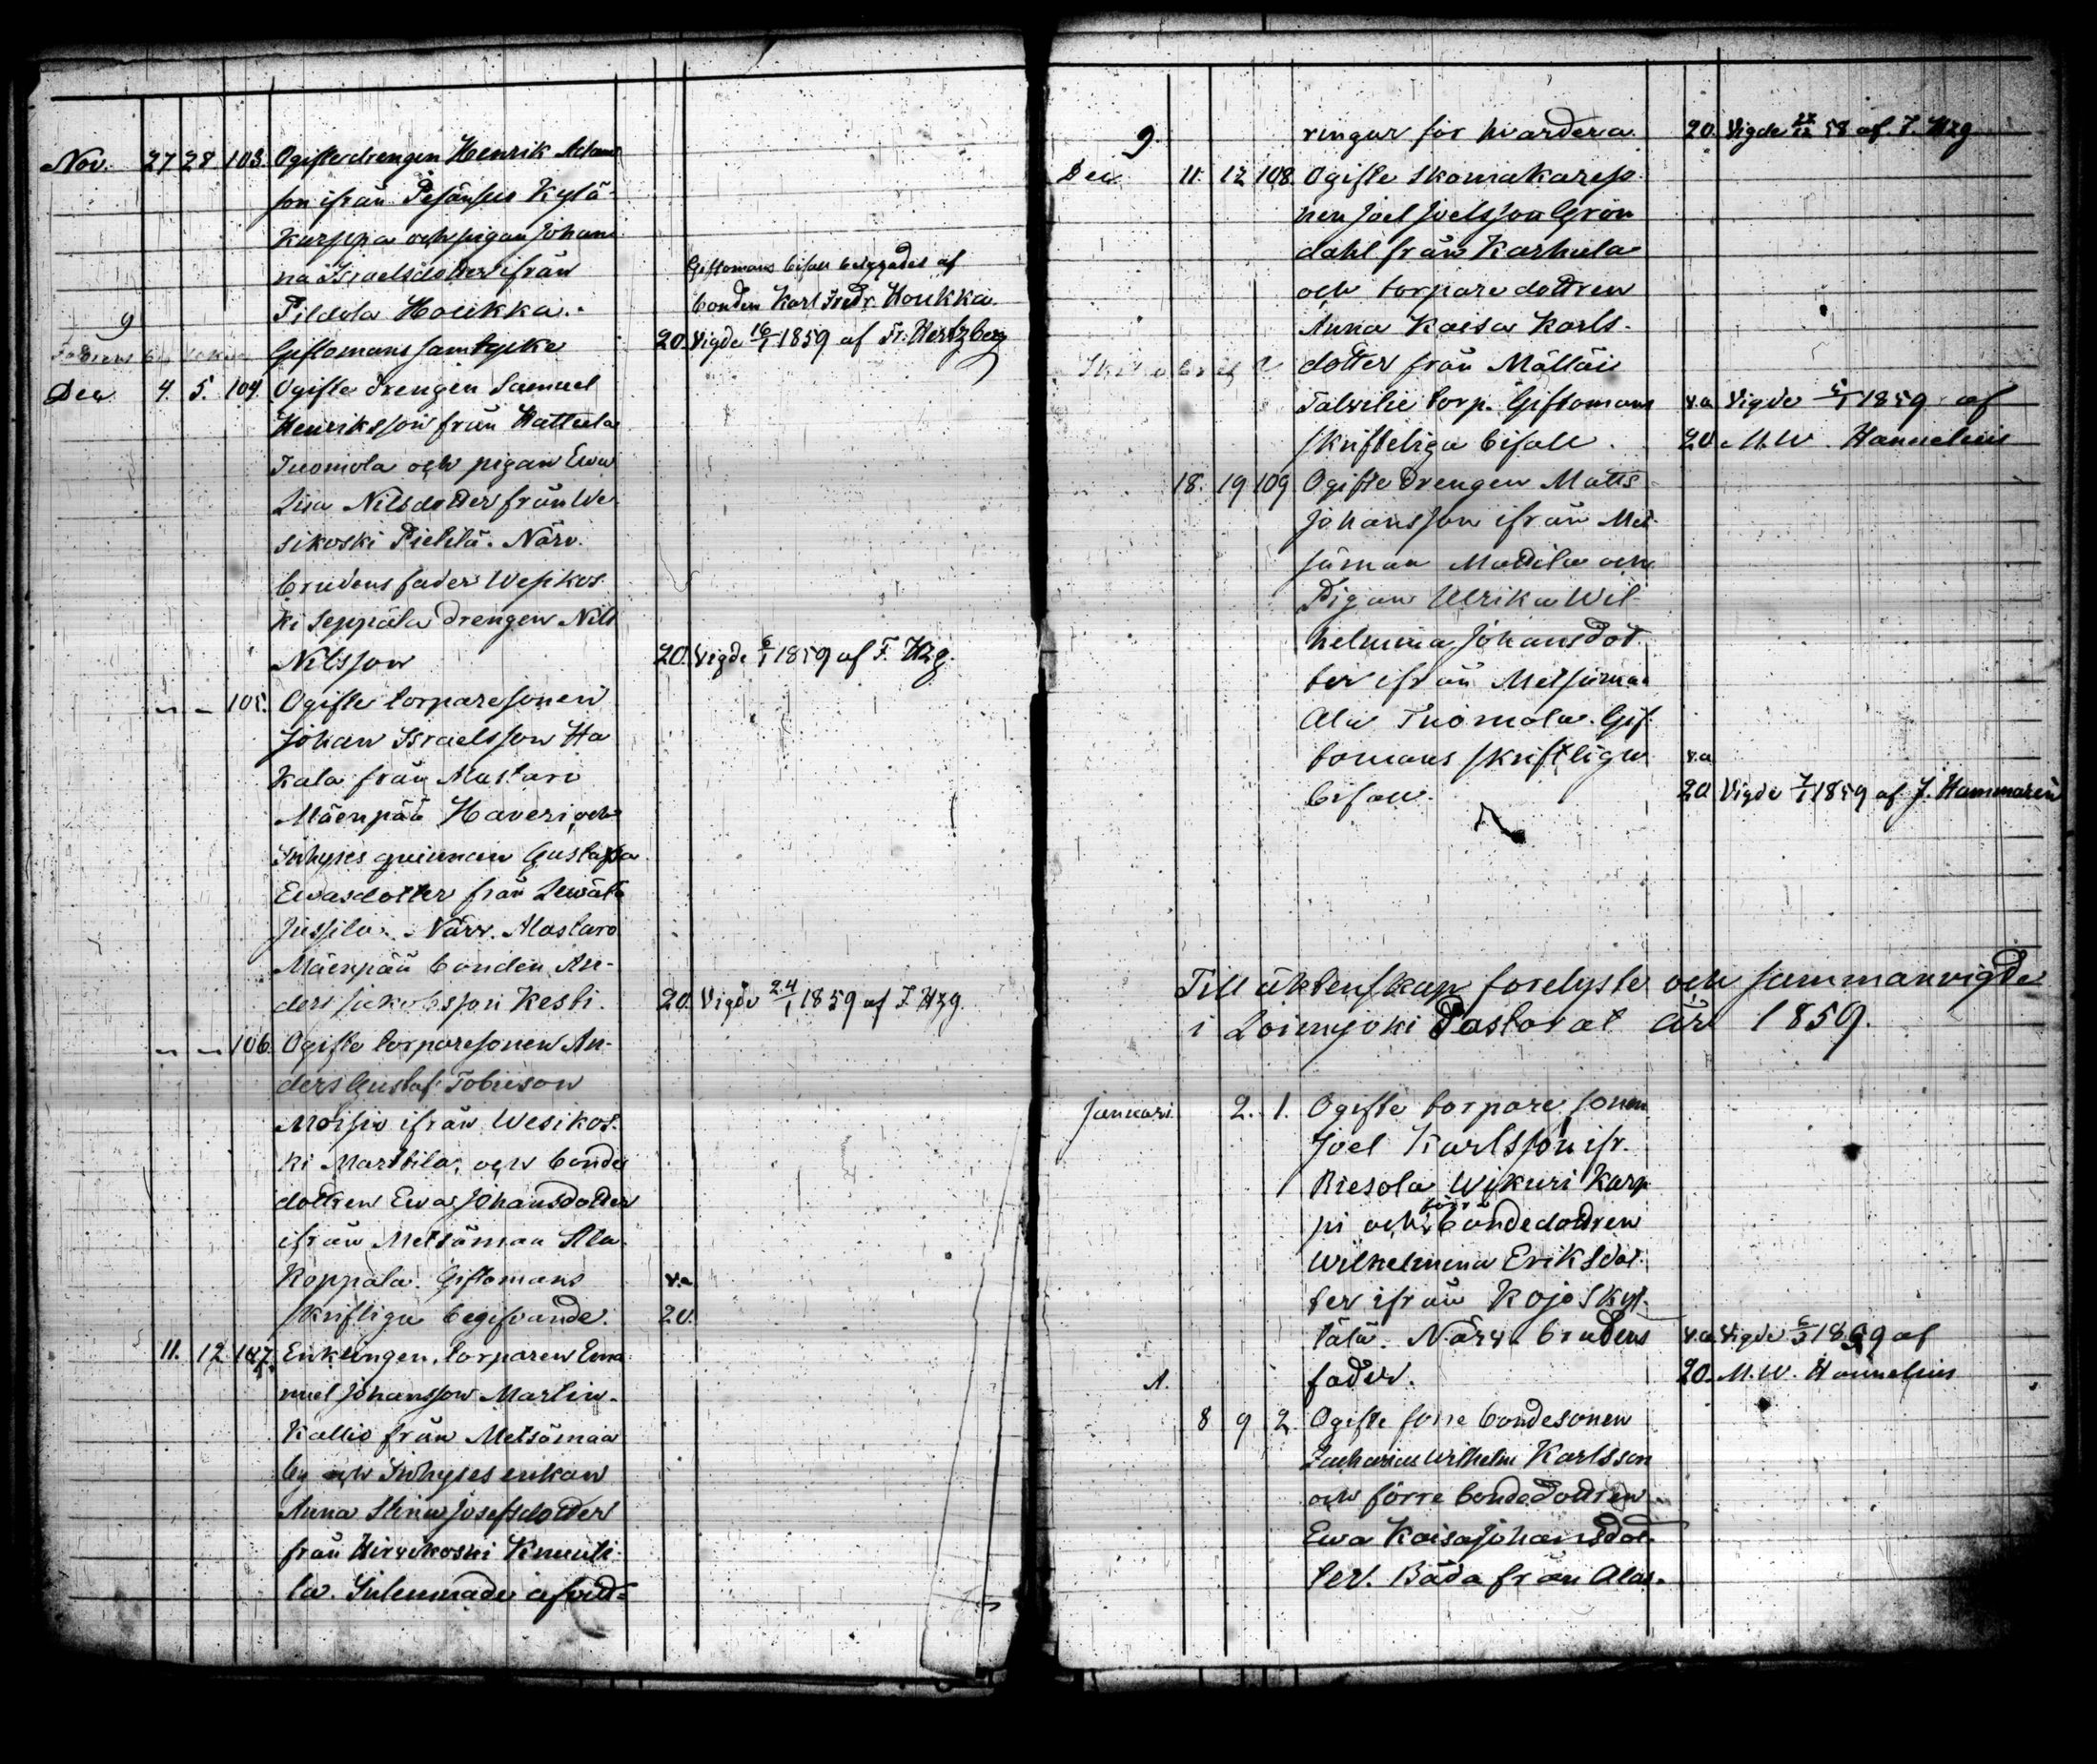 Nov. 27 28 103. Ogifte drengen Henrik Adams
son ifrån Pesänsuo Kylä-
Karppa och pigan Johan
na Israelsdotter ifrån
Pildola Houkka.
Giftomans bifall betygades af
bonden Karl Fredr. Houkka.
Giftomans samtycke 20. Vigde 16/1 1859 af Fr. Hertzberg
Dec. 4. 5. 104. Ogifte drengen Samuel
Henriksson från Hattula
Tuomola och pigan Ewa
Lisa Nilsdotter från We-
sikoski Pietilä. Närv.
brudens fader Wesikos-
ki Seppälä drengen Nils
Nilsson 20. Vigde 6/1 1859 af F. Hzg.
" " 105. Ogifte torparesonen
Johan Israelsson Ha
kala från Alastaro
Mäenpää Haveri och
Inhyses qvinnan Gustafva
Ewasdotter från
Jussila. Närv. Alastaro
Mäenpää bonden An-
ders Jakobsson Kesti. 20. Vigde 24/1 1859 af F Hzg.
" " 106. Ogifte torparesonen An-
ders Gustaf Tobiesson
Moisio ifrån Wesikos-
ki Marttila, och bonde
dottren Ewa Johansdotter
ifrån Metsämaa Ala-
Koppala. Giftomans v.a
skriftliga begifvande. 20.
11. 12 107. Enklingen, torparen Ema
nuel Johansson Martin-
Kallio från Metsämaa
by och Inhyses enkan
Anna Stina Josefsdotter
från Hirvikoski Knuuti-
la. Inlemnade afvitt-
9. ringar för hvardera 20. Vigde 27/12 58 af. F. Hzg
Dec. 11. 12 108. Ogifte skomakareso-
nen Joel Joelsson Grön
dahl från Karhula
och torpare dottren
Anna Kaisa Karls-
dotter från Mältäis
Talvilie torp. Giftomans v.a Vigde 5/1 1859 af
skrifteliga bifall. 20. M.W. Hannelius
18. 19 109 Ogifte drengen Matts
Johansson ifrån Met-
sämaa Mattila och
Pigan Ulrika Wil-
helmina Johansdot
ter ifrån Metsämaa
Ali Tuomola. Gif-
tomans skriftliga v.a
bifall. 20 Vigde 7/1 1859 af J. Hammarén
Till äktenskap förelyste och sammanvigde
i Loimijoki Pastorat år 1859.
Januari. 2. 1. Ogifte torpare sonen
Joel Karlsson ifr.
Riesola Wikuri Karp
förra
pi och bondedottren
Wilhelmina Eriksdot-
ter ifrån Kojo Kyt-
tälä. Närv. brudens v.a Vigde 6/2 1859 af
fader. 20. M.W. Hannelius
8 9 2. Ogifte förre bondesonen
Zacharias Wilhelm Karlsson
och förre bondedottren
Ewa Kaisa Johansdot-
ter. Båda från Alas-